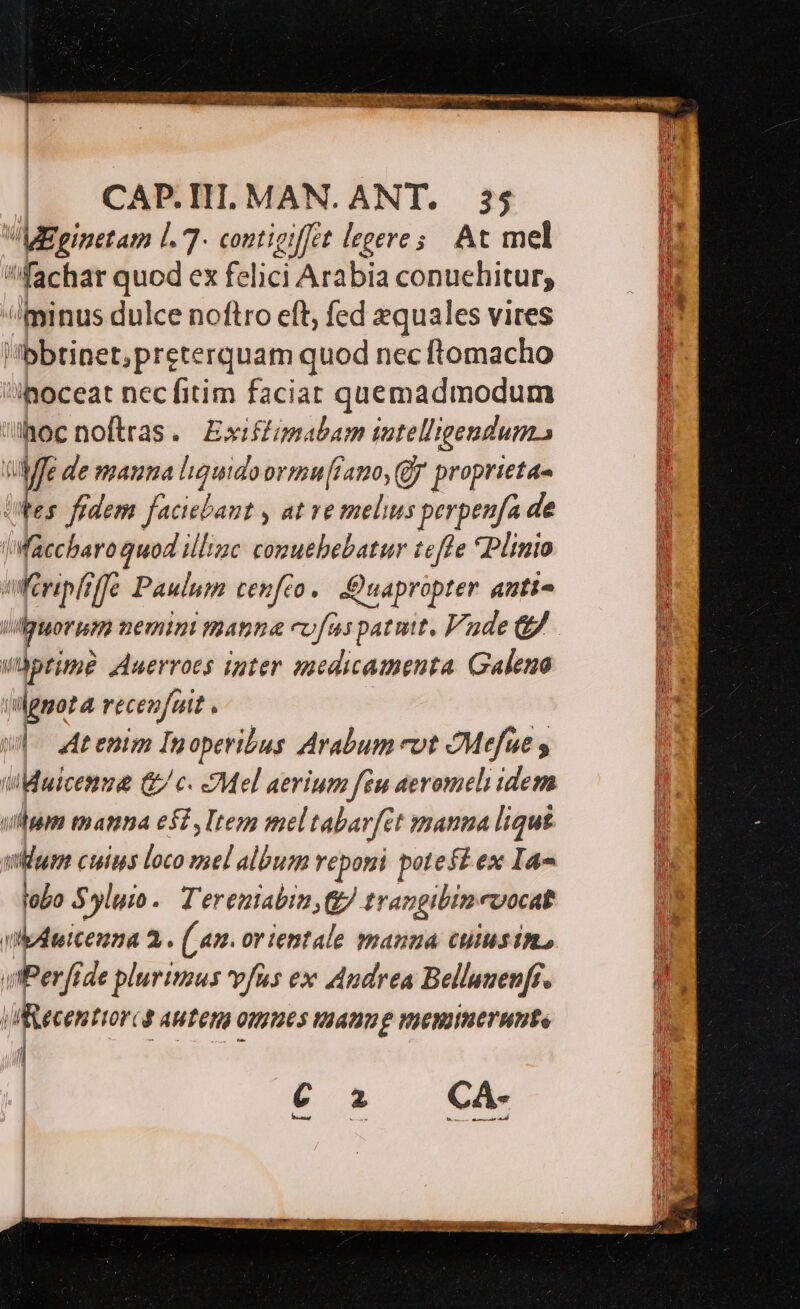 CAP. III. MAN. ANT. 35
Æginetam l. 7. contigiſſet legere; At mel
ſachar quod ex felici Arabia conuehitur,
minus dulce noſtro eſt, ſed æquales vires
obtinet, pręterquam quod nec ſtomacho
noceat nec ſitim faciat quemadmodum
hoc noſtras. Exiſtimabam intelligendum
eſſe de manna liquido ormuſiano, & proprieta-
tes fidem faciebant, at re melius perpenſa de
ſaccharo quod illinc conuehebatur teſte Plinio
ſcripſiſſe Paulum cenſeo. Quapropter anti-
quorum nemini mannæ vſus patuit. Vnde &
optimè Auerroes inter medicamenta Galeno
ignota recenſuit.
At enim In operibus Arabum vt Meſue,
Auicennæ &c. Mel aerium ſeu aeromeli idem
cum manna eſt, Item mel tabarſet manna liqui
dum cuius loco mel album reponi poteſt ex Ia-
cobo Syluio. Tereniabin, & trangibin vocat
Auicenna 2. can. orientale manna cuius in
Perſide plurimus vſus ex Andrea Bellunenſi.
Recentiores autem omnes mannę meminerunt.
C 2 CA-